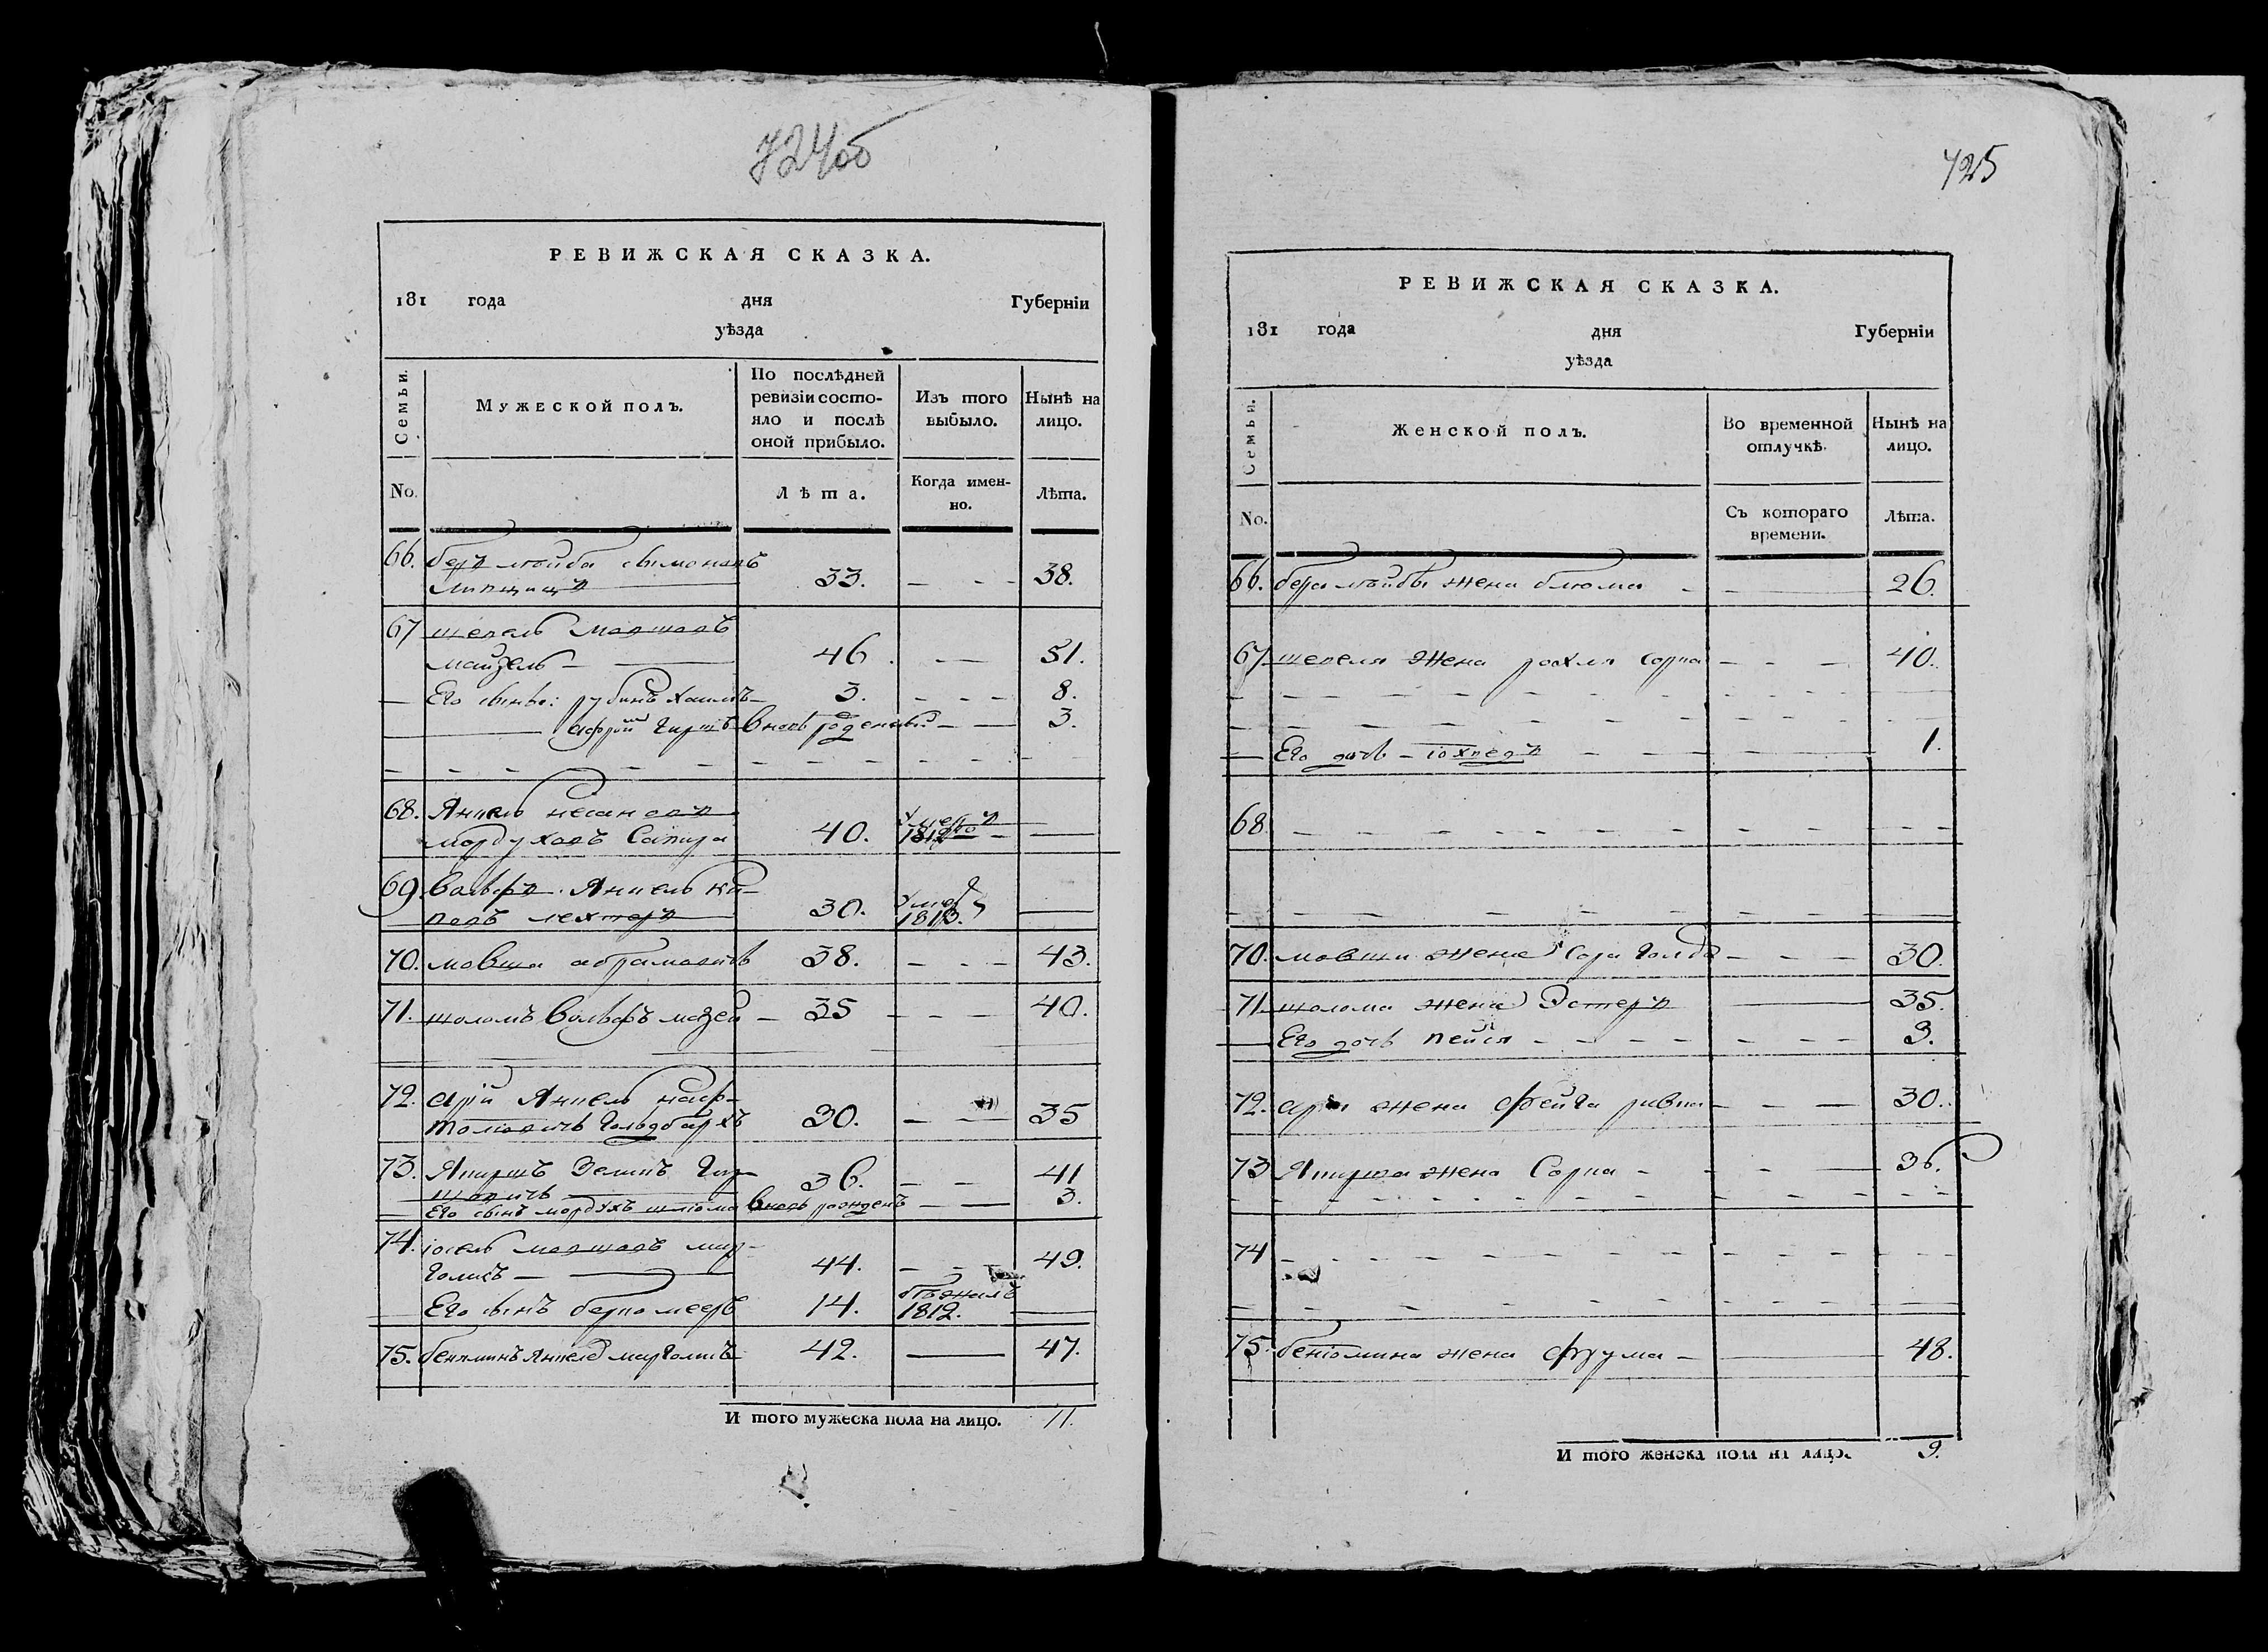 724об
РЕВИЖСКАЯ СКАЗКА.
181 года дня Губерніи
уѣзда
Семьи.
Мужеской полъ.
По послѣдней ревизіи состояло и послѣ оной прибыло.
Изъ того выбыло.
Нынѣ на лицо.
No.
Лѣта.
Когда именно.
Лѣта.
66. беръ лейба симоновъ
33. — - - 38.
67 шепель мовшовъ
майзель — 46. — 51.
— Его сынъ: рубинъ хаимъ — 3. - - - 8.
гиршъ вновь — — 3.
68. Янкель
мордуховъ Сапира 40. умеръ 1812 —
69. Вольфъ Янкель
30. умеръ 1813. —
70. мовша абрамовичъ 38. - - - 43.
71. шоломъ вольфъ — 35 - - - 40.
72. арій Янкель наф-
толовичъ гольдбархъ 30. — — 35
73. Зелинъ гир-
шовичъ 36. - - 41
Его сынъ мордухъ шлиома вновь рожденъ — — 3.
74. іосель мовшовъ мар-
голисъ — 44. - - - 49.
Его сынъ беркомееръ 14. бѣжалъ 1812. —
75. бениаминъ Янкелев марголисъ 42. — 47.
И того мужеска пола на лицо. 11.
725
РЕВИЖСКАЯ СКАЗКА.
181 года дня Губерніи
уѣзда
Семьи.
Женской полъ.
Во временной отлучкѣ.
Нынѣ на лицо.
No.
Съ котораго времени.
Лѣта.
66. бера лейбы жена блюма - — 26.
67. шепеля жена рохля сорка — - — 40.
— Его дочь — іохведъ - - — 1.
68. - - - -
70. мовши жена Сора голда — - — 30.
71. шолома жена Эстеръ — 35.
— Его дочь пейся - - - - 3.
72. жена фейга ривка — — — 30.
73 жена Сорка - - - — 36.
74 - - - -
75. беніомина жена фрума — — 48.
И того женска пола на лицо. 9.